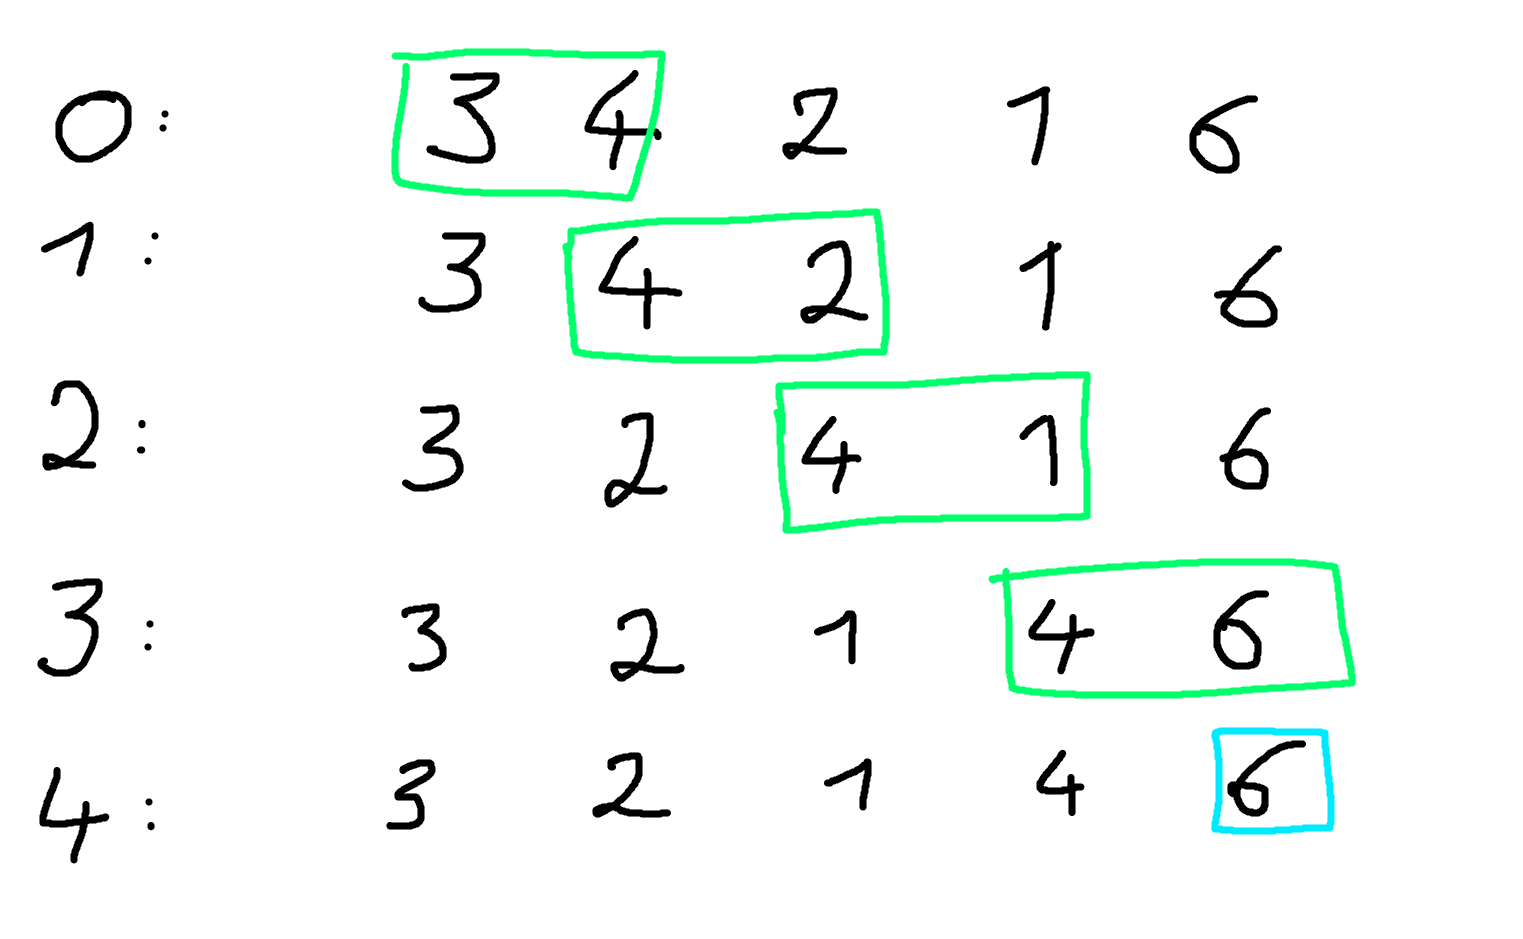 0: 3 4 2 1 6
1: 3 4 2 1 6
2: 3 2 4 1 6
3: 3 2 1 4 6
4: 3 2 1 4 6